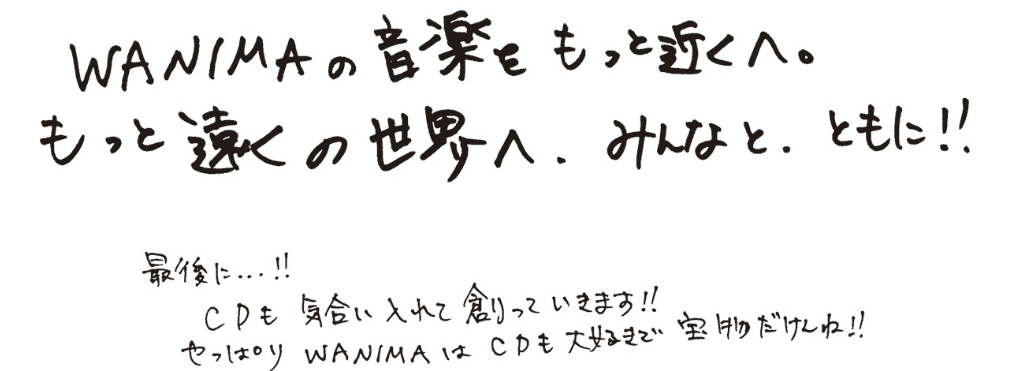 WANIMAの音楽をもっと近くへ。
もっと遠くの世界へ．みんなと．ともに!!
最後に...!!
CDも気合い入れて創っていきます!!
やっぱり WANIMAは CDも大好きで宝物だけんね!!